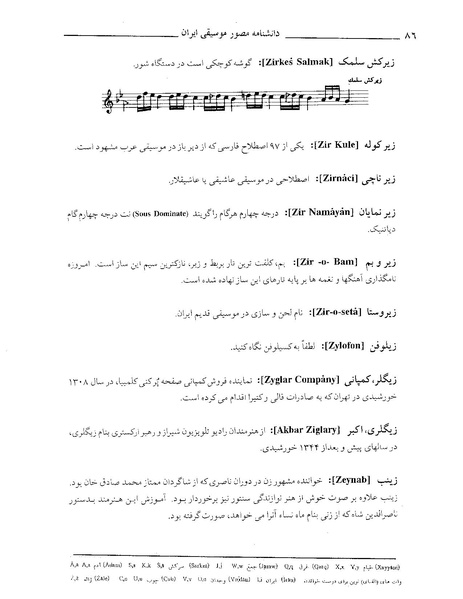 ۸۶ دانشنامه مصور موسیقی ایران
زیرکش سلمک [Zirkeś Salmak]: گوشه کوچکی است در دستگاه شور.
زیرکش سلمک
زیر کوله [Zir Kule]: یکی از ۹۷ اصطلاح فارسی که از دیر باز در موسیقی عرب مشهود است.
زیر ناچی [Zirnáci]: اصطلاحی در موسیقی عاشیقی یا عاشیقلار.
زیر نمایان [Zir Namàyán]: درجه چهارم هرگام را گویند (Sous Dominate) نت درجه چهارم گام
دیاتنیک.
زیر و بم [Zir -o- Bam]: بم، کلفت ترین تار بربط و زیر، نازکترین سیم این ساز است. امروزه
نامگذاری آهنگها و نغمه ها بر پایه تارهای این ساز نهاده شده است.
زیروستا [Zir-o-setá]: نام لحن و سازی در موسیقی قدیم ایران.
زیلوفن [Zylofon]: لطفاً به کسیلوفن نگاه کنید.
زیگلر، کمپانی [Zyglar Compåny]: نماینده فروش کمپانی صفحه پُرکنی کلمبیا، در سال ۱۳۰۸
خورشیدی در تهران که به صادرات قالی و کتیرا اقدام می کرده است.
زیگلری، اکبر [Akbar Ziglary]: از هنرمندان رادیو تلویزیون شیراز و رهبر ارکستری بنام زیگلری،
در سالهای پیش و بعداز ۱۳۴۴ خورشیدی.
زینب [Zeynab]: خواننده مشهور زن در دوران ناصری که از شاگردان ممتاز محمد صادق خان بود.
زینب علاوه بر صوت خوش از هنر نوازندگی سنتور نیز برخوردار بود. آموزش این هنرمند بدستور
ناصرالدین شاه که از زنی بنام ماه نساء آنرا می خواهد، صورت گرفته بود.